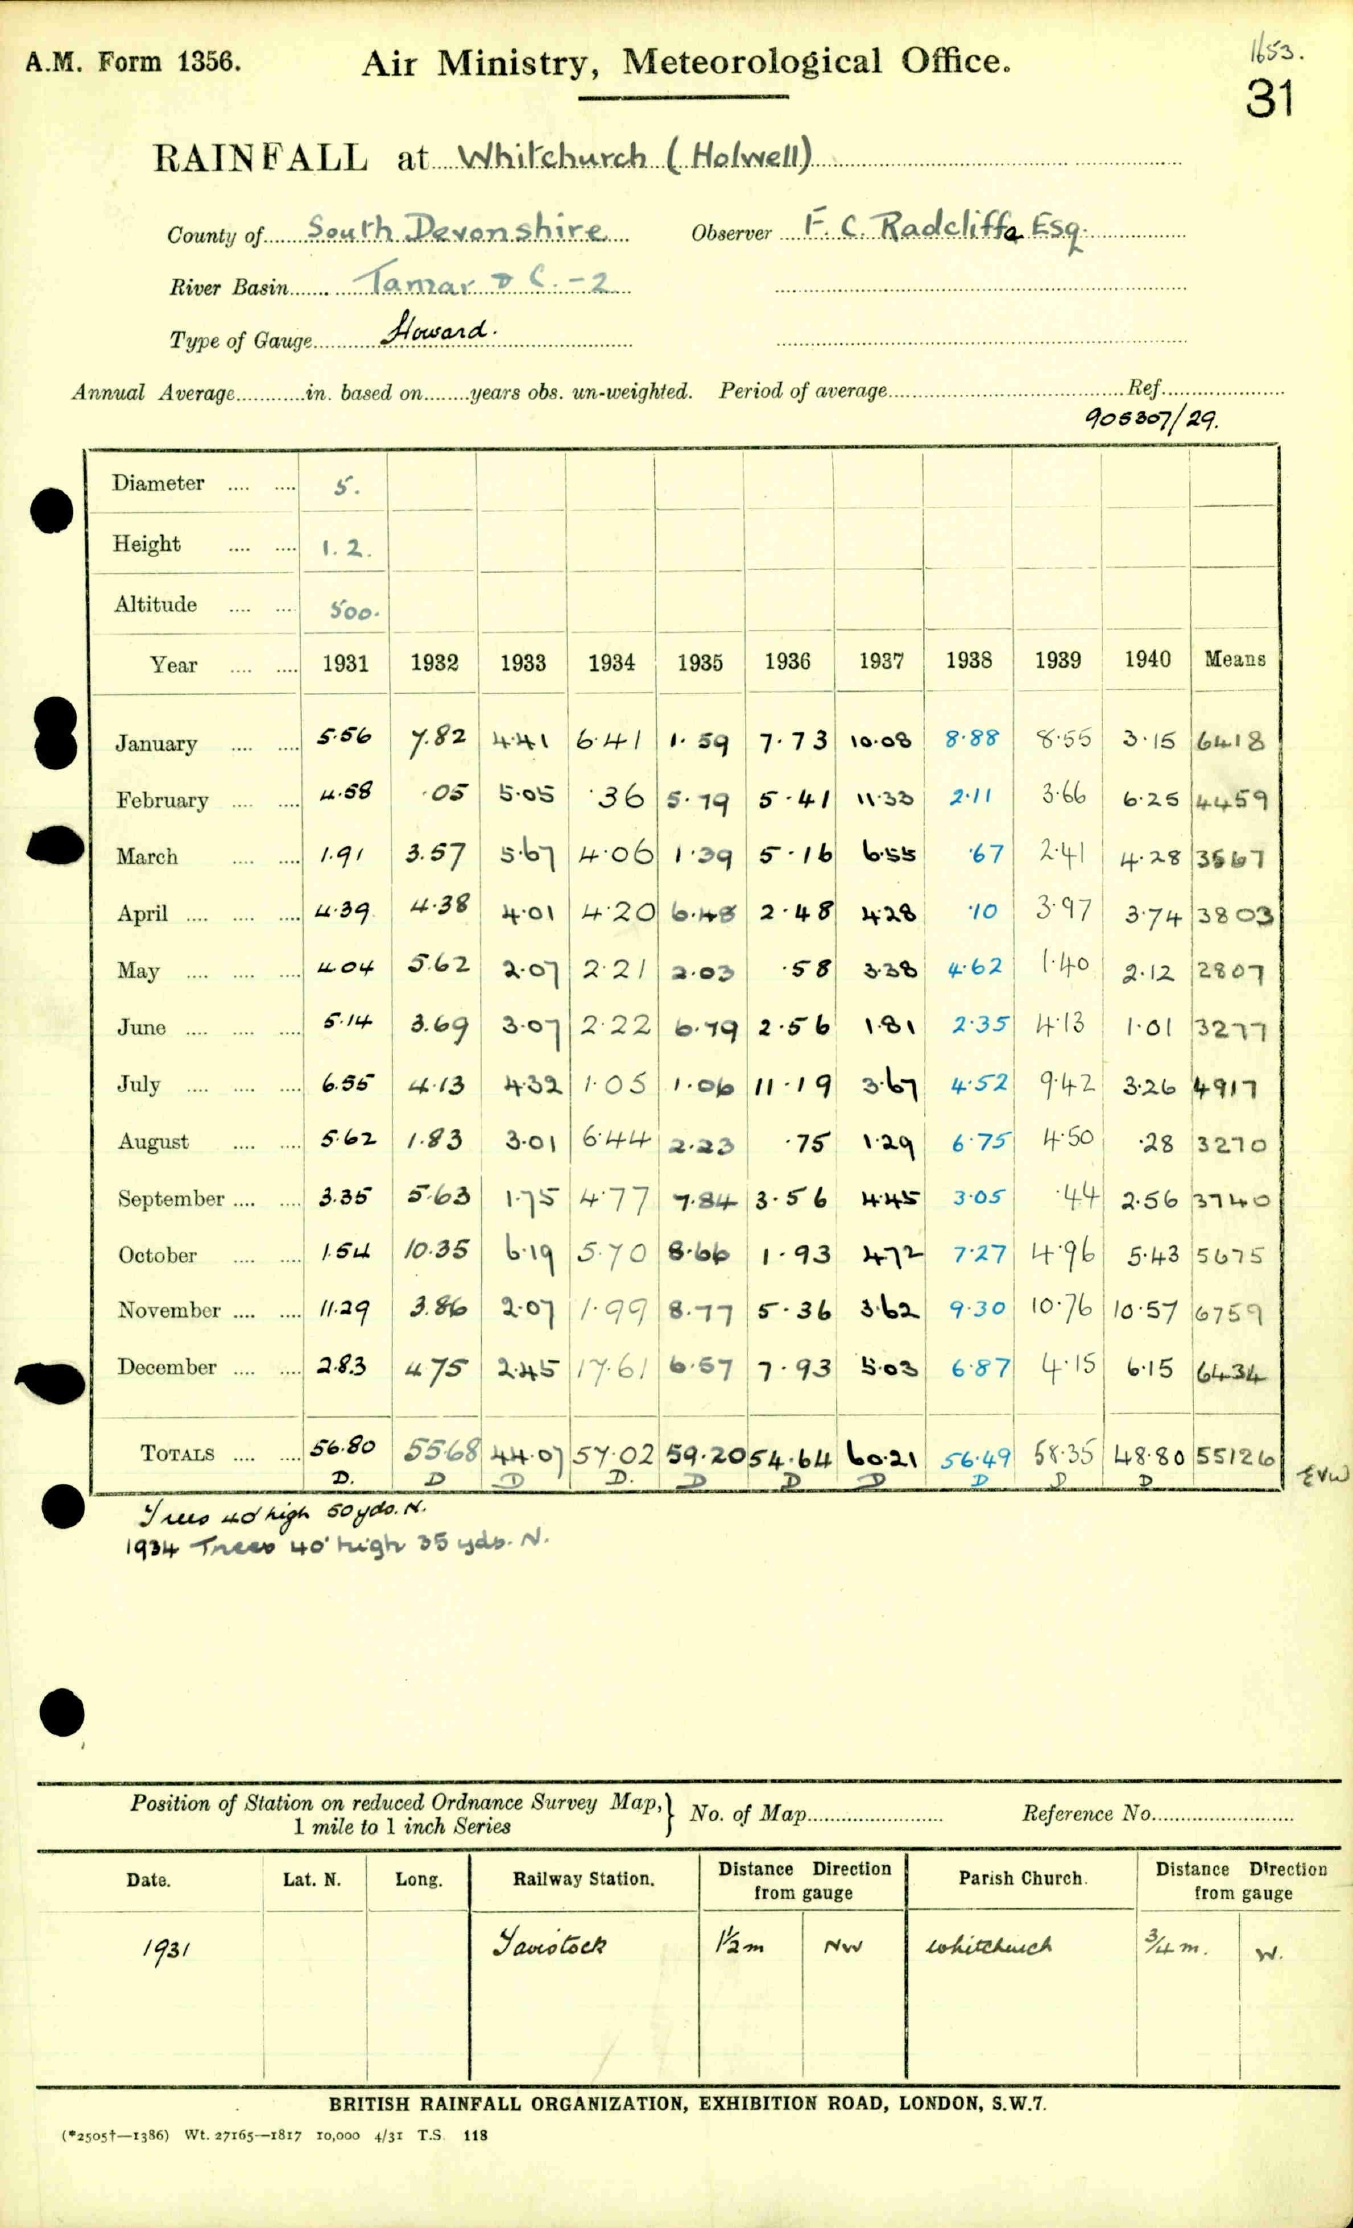 A.M. Form 1356. Air Ministry, Meteorological Office. 1653.
31
RAINFALL at Whitchurch (Holwell)
County of South Devonshire Observer F. C. Radcliffe Esq.
River Basin Tamar & C. - 2
Type of Gauge Howard.
Annual Average in. based on years obs. un-weighted. Period of average Ref.
905307/29.
Diameter .... .... 5.
Height .... .... 1. 2.
Altitude .... .... 500.
Year .... .... 1931 1932 1933 1934 1935 1936 1937 1938 1939 1940 Means
January .... .... 5.56 7.82 4.41 6.41 1.59 7.73 10.08 8.88 8.55 3.15 6418
February .... .... 4.58 .05 5.05 .36 5.79 5.41 11.33 2.11 3.66 6.25 4459
March .... .... 1.91 3.57 5.67 4.06 1.39 5.16 6.55 .67 2.41 4.28 3567
April .... .... .... 4.39 4.38 4.01 4.20 6.48 2.48 4.28 .10 3.97 3.74 3803
May .... .... .... 4.04 5.62 2.07 2.21 2.03 .58 3.38 4.62 1.40 2.12 2807
June .... .... .... 5.14 3.69 3.07 2.22 6.79 2.56 1.81 2.35 4.13 1.01 3277
July .... .... .... 6.55 4.13 4.32 1.05 1.06 11.19 3.67 4.52 9.42 3.26 4917
August .... .... 5.62 1.83 3.01 6.44 2.23 .75 1.29 6.75 4.50 .28 3270
September .... .... 3.35 5.63 1.75 4.77 7.84 3.56 4.45 3.05 .44 2.56 3740
October .... .... 1.54 10.35 6.19 5.70 8.66 1.93 4.72 7.27 4.96 5.43 5675
November .... .... 11.29 3.86 2.07 1.99 8.77 5.36 3.62 9.30 10.76 10.57 6759
December .... .... 2.83 4.75 2.45 17.61 6.57 7.93 5.03 6.87 4.15 6.15 6434
TOTALS .... .... 56.80 55.68 44.07 57.02 59.20 54.64 60.21 56.49 58.35 48.80 55126
D. D D D. D D D D D D EVW
Trees 40' high 50 yds. N.
1934 Trees 40' high 35 yds. N.
Position of Station on reduced Ordnance Survey Map, } No. of Map Reference No.
1 mile to 1 inch Series
Date. Lat. N. Long. Railway Station. Distance Direction from gauge Parish Church. Distance Direction from gauge
1931 Tavistock 1½ m NW Whitchurch ¾ m. W.
BRITISH RAINFALL ORGANIZATION, EXHIBITION ROAD, LONDON, S.W.7.
(*2505†—1386) Wt. 27165—1817 10,000 4/31 T.S. 118